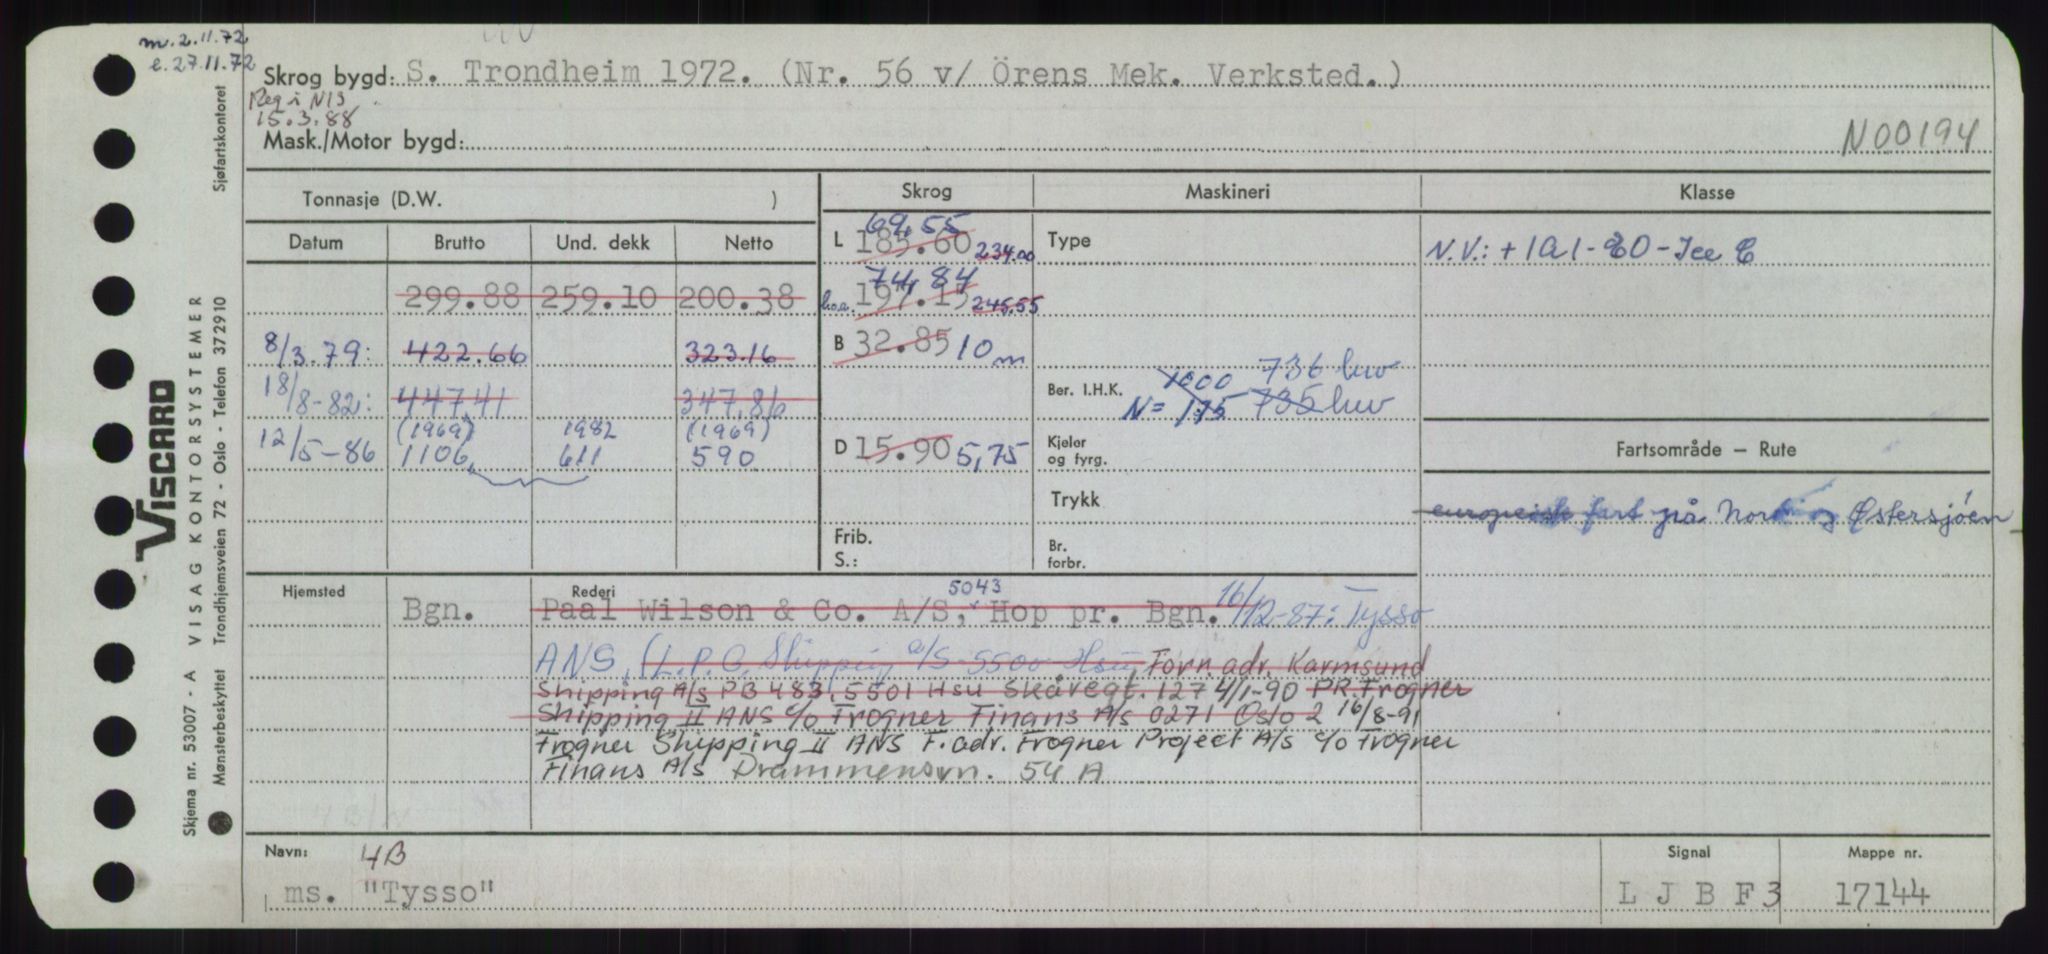 m. 2.11.72
e. 27.11.72
Skrog bygd: S. Trondheim 1972. (Nr. 56 v/ Örens Mek. Verksted.)
Reg i NIS
15.3.88
Mask./Motor bygd:
N00194
Tonnasje (D.W. )
Skrog
Maskineri
Klasse
Datum
Brutto
Und. dekk
Netto
L 69,55
185.60 234.00
Type
N.V.: +1A1-EO-Ice C
299.88 259.10 200.38
74,84
l.o.a. 197.15 245.55
8/3.79: 422.66 323.16
B 32.85 10 m
18/8-82: 447,41 347,86
Ber. I.H.K. 1000 736 kw
N= 175 735 kw
12/5-86 (1969) 1982 (1969)
1106 611 590
D 15.90 5,75
Kjeler
og fyrg.
Fartsområde – Rute
Trykk
europeisk fart på Nord og Østersjöen
Frib.
S.:
Br.
forbr.
Hjemsted
Rederi
5043
Bgn. Paal Wilson & Co. A/S, Hop pr. Bgn. 16/12-87: Tysso
ANS, (L.P.C. Shipping a/S 5500 Hsu, Forn. adr. Karmsund
Shipping A/s PB 483, 5501 Hsu Skåregt. 127 4/1-90 PR. Frogner
Shipping II ANS c/o Frogner Finans A/s 0271 Oslo 2 16/8-91
Frogner Shipping II ANS F. adr. Frogner Project A/s c/o Frogner
Finans A/s Drammensvn. 54 A
Navn: 4B
ms. "Tysso"
Signal
L J B F 3
Mappe nr.
17144
VISCARD
VISAG KONTORSYSTEMER
Skjema nr. 53007 - A
Mønsterbeskyttet Trondhjemsveien 72 - Oslo - Telefon 372910 Sjøfartskontoret